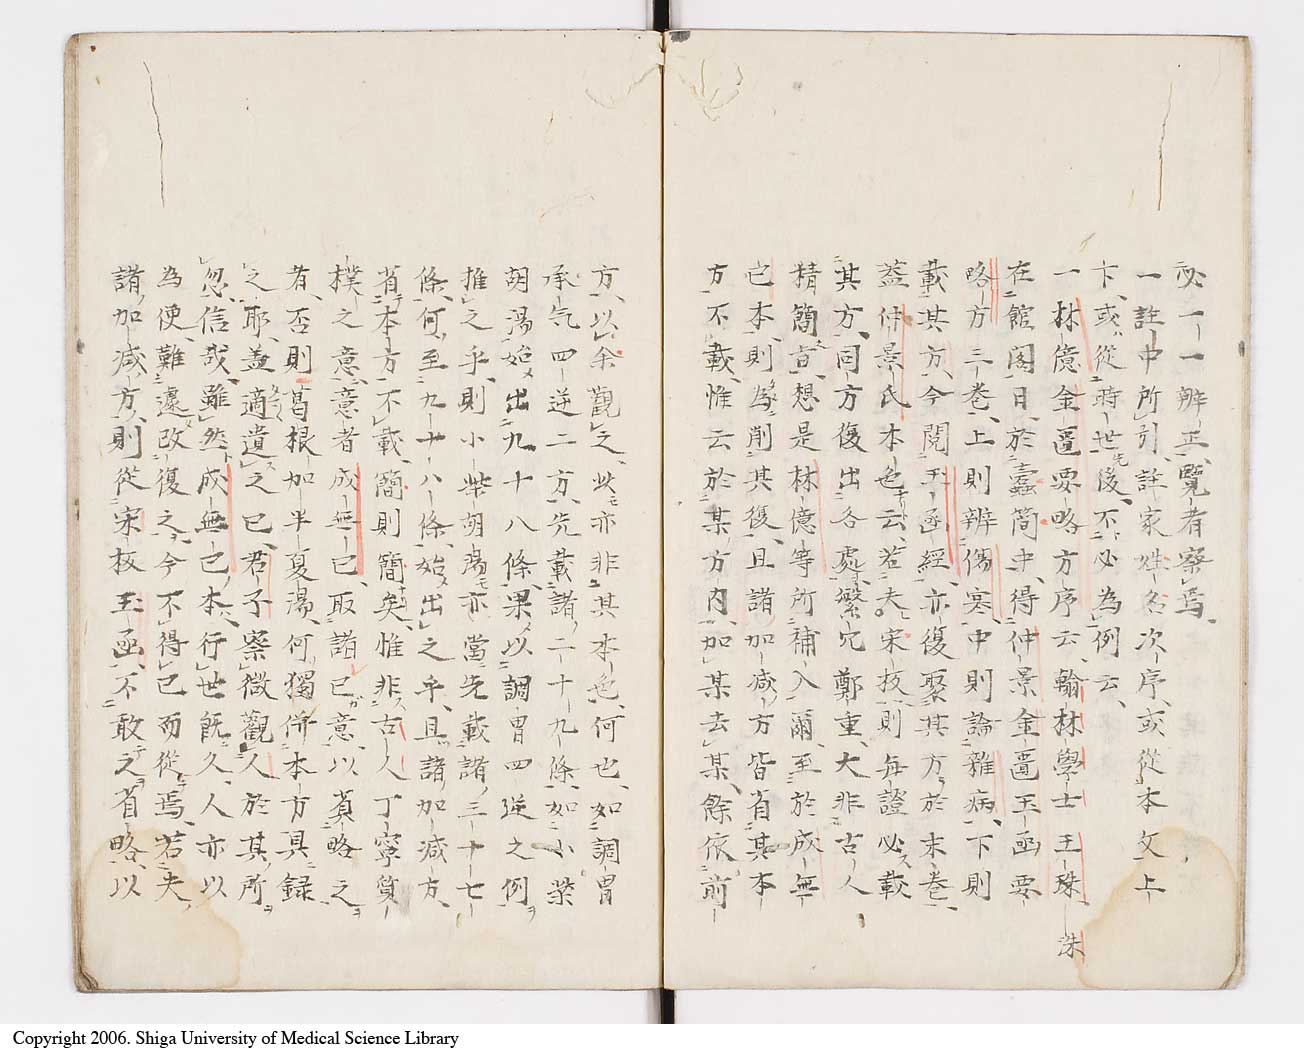 必一一辨正、覽者察焉、
一註中所引、註家姓名次序、或從本文上
下、或從時世先後、不必為例云、
一林億金匱要略方序云、翰林學士王珠洙
在館閣日、於蠹簡中、得仲景金匱玉函要
略方三卷、上則辨傷寒、中則論雜病、下則
載其方、今閱玉函經、亦復聚其方於末卷、
蓋仲景氏本色云、若夫宋板、則每證必載
其方、同方復出各處、繁冗鄭重、大非古人
精簡旨、想是林億等所補入爾、至於成無
已本、則為削其復、且諸加減方皆省其本
方不載、惟云於某方内、加某去某、餘依前
方、以余觀之、此亦非其本色、何也、如調胃
承气四逆二方、先載諸二十九條、如小柴
胡湯始出九十八條、果以調胃四逆之例
推之乎、則小柴胡湯亦當先載諸三十七
條、何至九十八條、始出之乎、且諸加減方、
省本方不載、簡則簡矣、惟非古人丁寧質
樸之意、意者成無已、取諸已意、以蒉略之
者、否則葛根加半夏湯、何獨俻本方具錄
之耶、蓋適遺之已、君子察微、觀人於其所
忽、信哉、雖然成無已本、行世既久、人亦以
為使、難遽改復之、今不得已而從焉、若夫
諸加減方、則從宋板玉函、不敢之省略、以